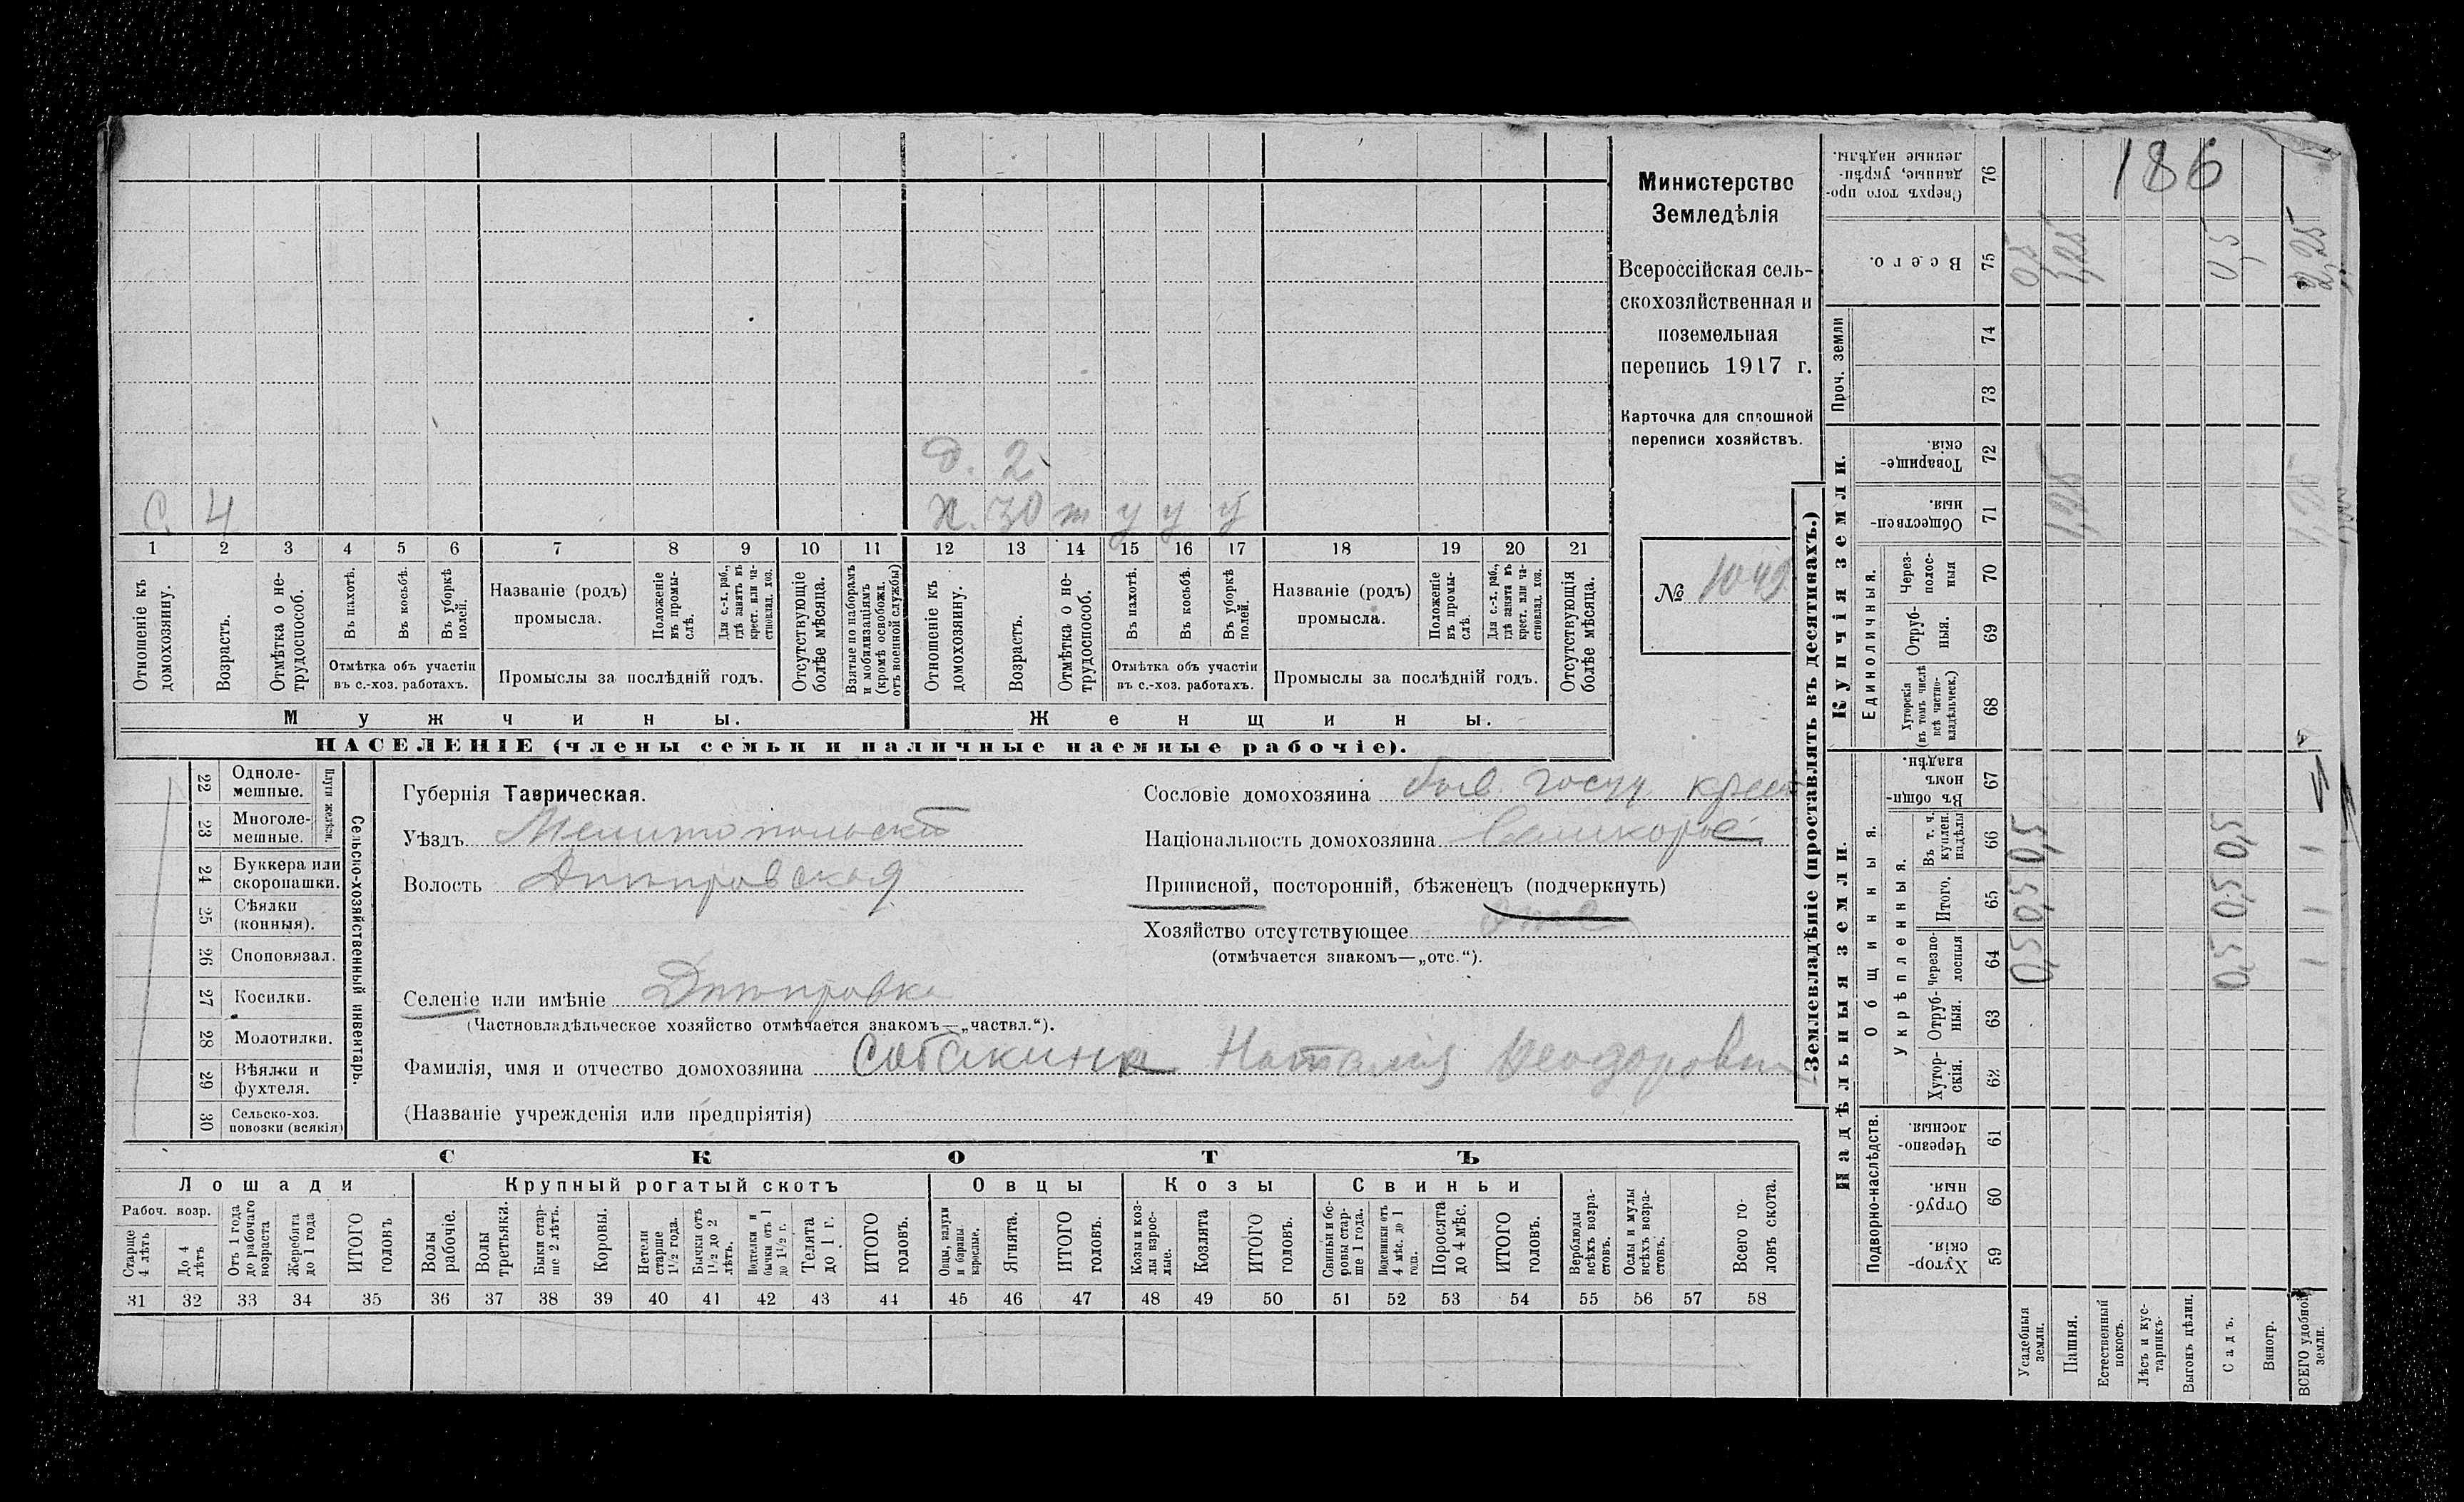 186
Министерство
Земледѣлія
Всероссійская сель-
скохозяйственная и
поземельная
перепись 1917 г.
Карточка для сплошной
переписи хозяйствъ.
№ 1049
д. 2
С. 4
х. 30 т у у у
1 2 3 4 5 6 7 8 9 10 11 12 13 14 15 16 17 18 19 20 21
Отношеніе къ домохозяину.
Возрастъ.
Отмѣтка о не-трудоспособ.
Въ пахотѣ.
Въ косьбѣ.
Въ уборкѣ полей.
Отмѣтка объ участіи
въ с.-хоз. работахъ.
Названіе (родъ)
промысла.
Положеніе въ промы-слѣ.
Для с.-х. раб., гдѣ занятъ въ крест. или ча-стновлад. хоз.
Промыслы за послѣдній годъ.
Отсутствующіе болѣе мѣсяца.
Взятые по наборамъ и мобилизаціямъ (кромѣ освобожд. отъ военной службы)
Отношеніе къ домохозяину.
Возрастъ.
Отмѣтка о не-трудоспособ.
Въ пахотѣ.
Въ косьбѣ.
Въ уборкѣ полей.
Отмѣтка объ участіи
въ с.-хоз. работахъ.
Названіе (родъ)
промысла.
Положеніе въ промы-слѣ.
Для с.-х. раб., гдѣ занятъ въ крест. или ча-стновлад. хоз.
Промыслы за послѣдній годъ.
Отсутствующія болѣе мѣсяца.
Мужчины.
Женщины.
НАСЕЛЕНІЕ (члены семьи и наличные наемные рабочіе).
22 Одноле-мешные.
23 Многоле-мешные.
Плуги желѣзн.
24 Буккера или скоропашки.
25 Сѣялки (конныя).
26 Сноповязал.
27 Косилки.
28 Молотилки.
29 Вѣялки и фухтеля.
30 Сельско-хоз. повозки (всякія)
Сельско-хозяйственный инвентарь.
Губернія Таврическая.
Уѣздъ Мелитопольскій
Волость Днѣпровская
Сословіе домохозяина быв. госуд крест
Національность домохозяина Великорос
Приписной, посторонній, бѣженецъ (подчеркнуть)
Хозяйство отсутствующее
(отмѣчается знакомъ—„отс.“).
Селеніе или имѣніе Днѣпровка
(Частновладѣльческое хозяйство отмѣчается знакомъ—„частвл.“).
Фамилія, имя и отчество домохозяина Собакина Наталия Феодоровн
(Названіе учрежденія или предпріятія)
СКОТЪ
Лошади
Рабоч. возр.
Старше 4 лѣтъ
До 4 лѣтъ
Отъ 1 года до рабочаго возраста
Жеребята до 1 года
ИТОГО головъ
Крупный рогатый скотъ
Волы рабочіе.
Волы третьяки.
Быки стар-ше 2 лѣтъ.
Коровы.
Нетели старше 1½ года.
Бычки отъ 1½ до 2 лѣтъ.
Подтелки и бычки отъ 1 до 1½ г.
Телята до 1 г.
ИТОГО головъ.
Овцы
Овцы, валухи и бараны взрослые.
Ягнята.
ИТОГО головъ.
Козы
Козы и коз-лы взрос-лые.
Козлята
ИТОГО головъ.
Свиньи
Свиньи и бо-ровы стар-ше 1 года.
Подсвинки отъ 4 мѣс. до 1 года.
Поросята до 4 мѣс.
ИТОГО головъ.
Верблюды всѣхъ возра-стовъ.
Ослы и мулы всѣхъ возра-стовъ.
Всего го-ловъ скота.
31 32 33 34 35 36 37 38 39 40 41 42 43 44 45 46 47 48 49 50 51 52 53 54 55 56 57 58
Землевладѣніе (проставлять въ десятинахъ.)
76 Сверхъ того про-данные, укрѣп-ленные надѣлы.
75 Всего. 0,5 1,25 0,5 2,25
Проч. земли
74
73
Купчія земли.
72 Товарище-скія.
71 Обществен-ныя. 1,25 1,25
Единоличныя.
70 Через-полос-ныя
69 Отруб-ныя.
68 Хуторскія (въ томъ числѣ всѣ частно-владѣльческ.)
Надѣльныя земли.
Общинныя.
67 Въ общи-номъ владѣн.
Укрѣпленныя.
66 Въ т. ч. куплен. надѣлы 0,5 0,5 1
65 Итого. 0,5 0,5 1
64 Черезпо-лосныя 0,5 0,5 1
63 Отруб-ныя.
62 Хутор-скія.
Подворно-наслѣдств.
61 Черезпо-лосныя.
60 Отруб-ныя.
59 Хутор-скія.
Усадебныя земли.
Пашня.
Естественный покосъ.
Лѣсъ и кус-тарникъ.
Выгонъ цѣлин.
Садъ.
Виногр.
ВСЕГО удобной земли.